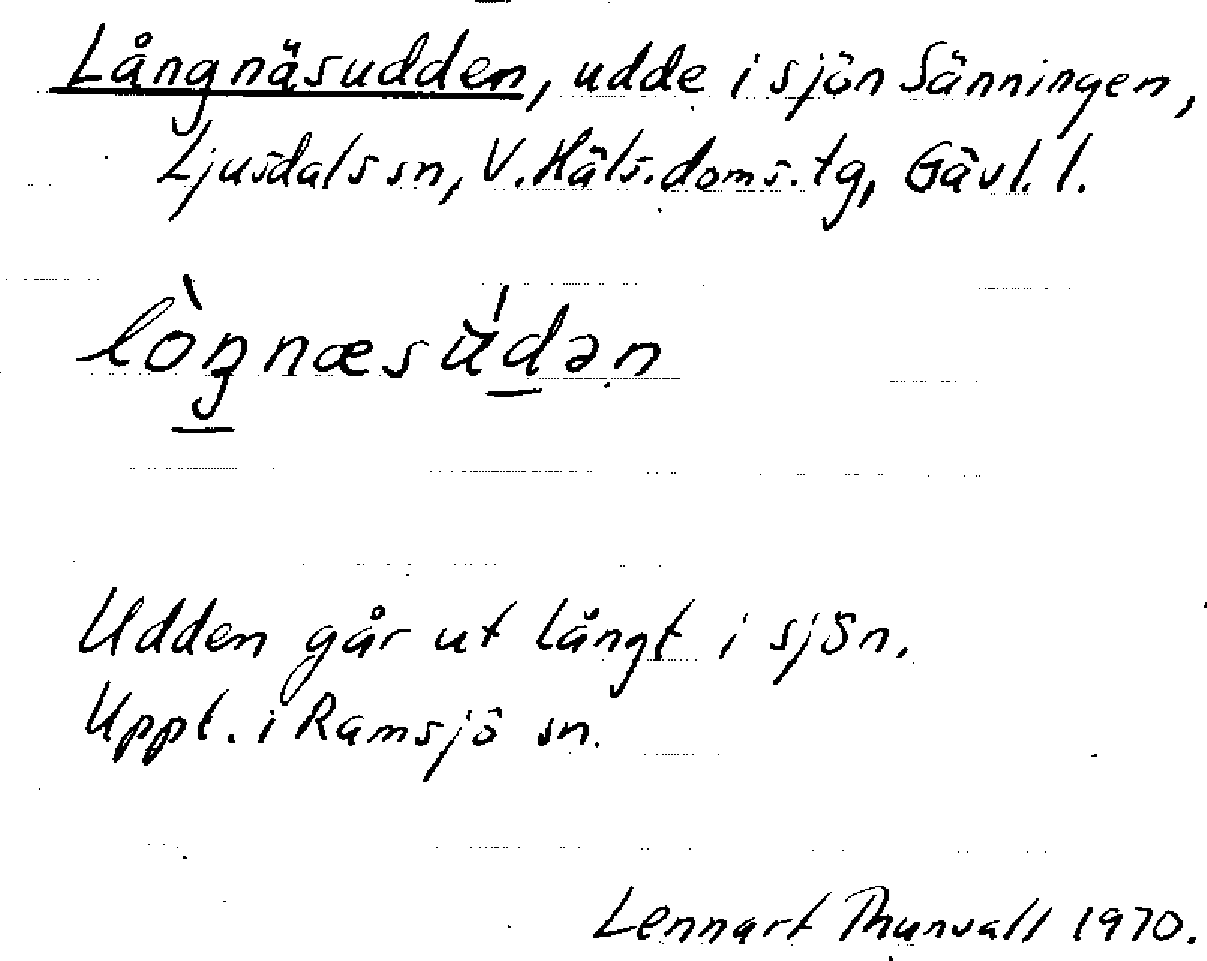 Långnäsudden, udde i sjön Sänningen,
Ljusdals sn, V. Häls. doms. tg, Gävl. l.
lòŋnæsùdən
Udden går ut långt i sjön.
Uppt. i Ramsjö sn.
Lennart Thunvall 1970.